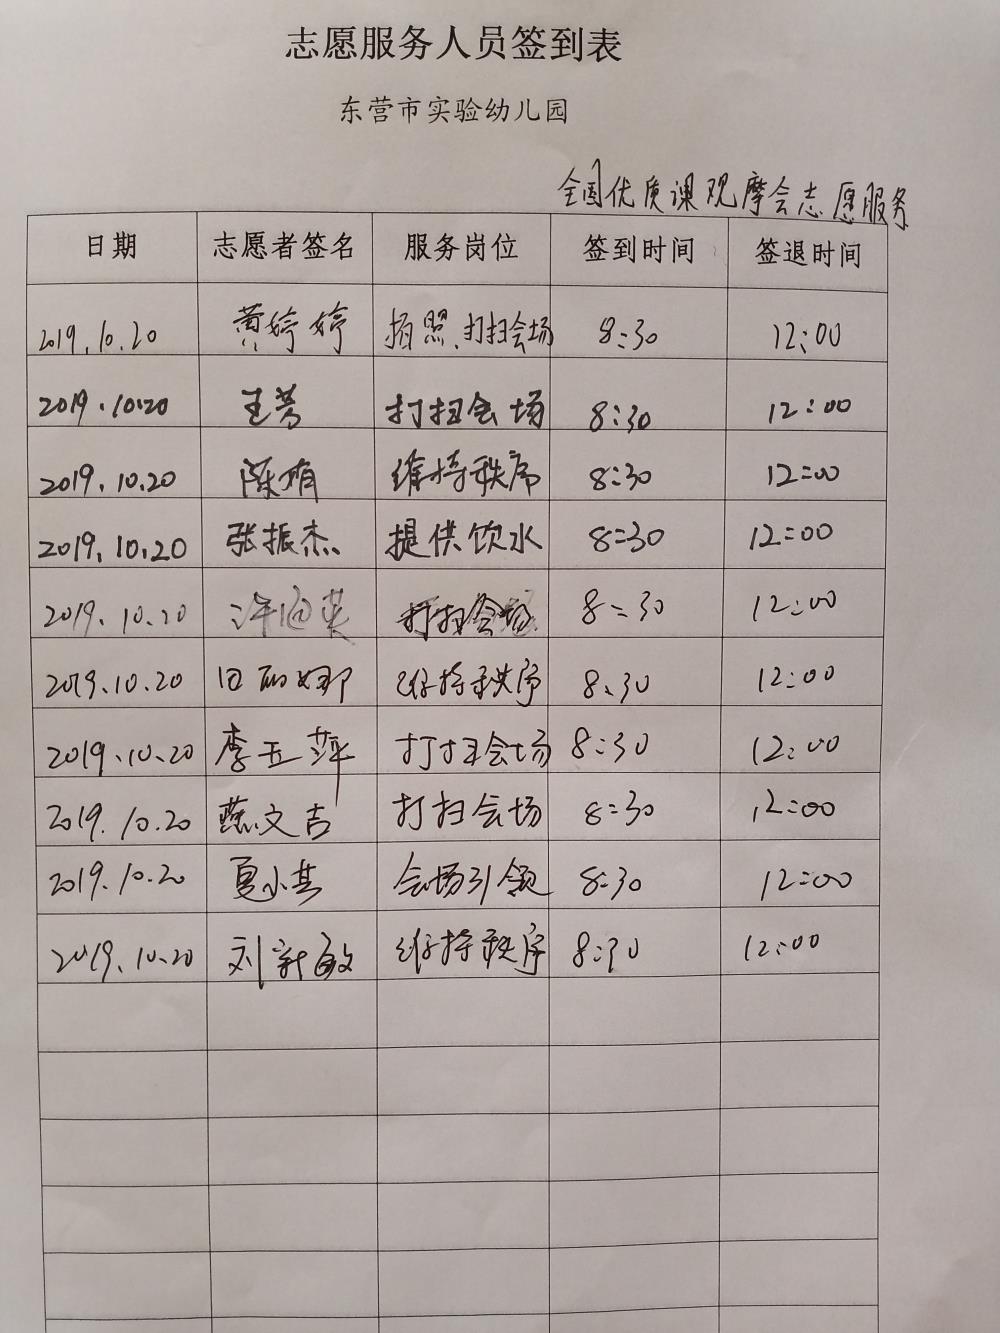 志愿服务人员签到表
东营市实验幼儿园
全国优质课观摩会志愿服务
日期 志愿者签名 服务岗位 签到时间 签退时间
2019.10.20 黄婷婷 拍照、打扫会场 8:30 12:00
2019.10.20 王芳 打扫会场 8:30 12:00
2019.10.20 陈娟 维持秩序 8:30 12:00
2019.10.20 张振杰 提供饮水 8:30 12:00
2019.10.20 打扫会场 8:30 12:00
2019.10.20 田丽娜 维持秩序 8:30 12:00
2019.10.20 李玉萍 打扫会场 8:30 12:00
2019.10.20 燕文吉 打扫会场 8:30 12:00
2019.10.20 夏小其 会场引领 8:30 12:00
2019.10.20 刘新敏 维持秩序 8:30 12:00